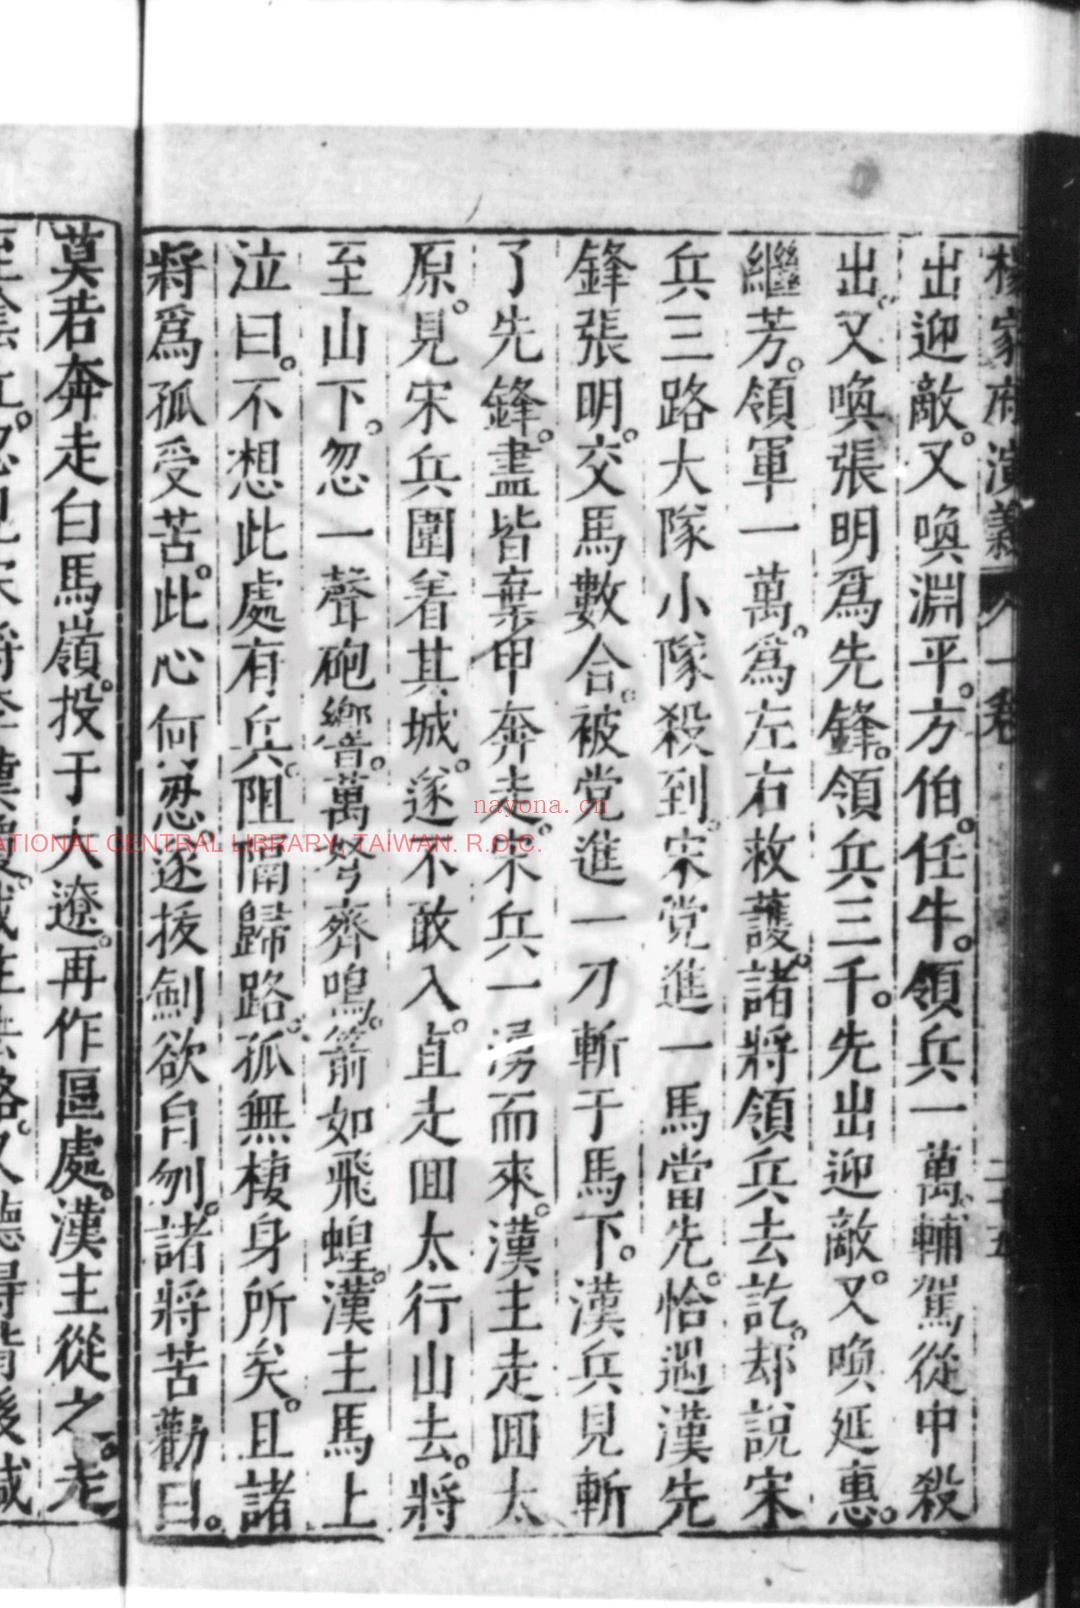 楊家府演義 八一卷 二十五
出迎敵。又喚淵平。方伯。任牛。領兵一萬。輔駕從中殺
出。又喚張明爲先鋒。領兵三千。先出迎敵。又喚延惠。
繼芳。領軍一萬。爲左右救護。諸將領兵去訖。却說宋
兵三路大隊小隊殺到。宋党進一馬當先。恰遇漢先
鋒張明。交馬數合。被党進一刀斬于馬下。漢兵見斬
了先鋒。盡皆棄甲奔走。宋兵一湧而來。漢主走囬太
原。見宋兵圍着其城。遂不敢入。直走囬太行山去。將
至山下。忽一聲砲響。萬弩齊鳴。箭如飛蝗。漢主馬上
泣曰。不想此處有兵。阻隔歸路。孤無棲身所矣。且諸
將爲孤受苦。此心何忍。遂拔劍欲自刎。諸將苦勸曰。
莫若奔走白馬嶺。投于大遼。再作區處。漢主從之。走